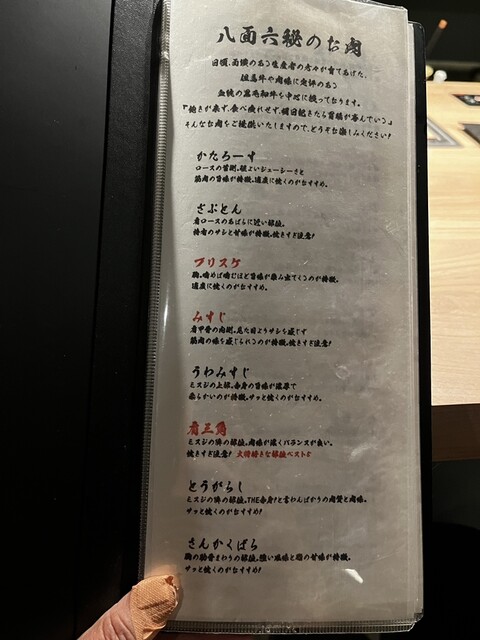 八面六秘のお肉
日頃、面識のある生産者の方々が育てあげた、
但馬牛や肉味に定評のある
血統の黒毛和牛を中心に扱っております。
『飽きが来ず、食べ疲れせず、翌日起きたら胃腸が喜んでいる』
そんなお肉をご提供いたしますので、どうぞお楽しみください!
かたろーす
ロースの首側、程よいジューシーさと
筋肉の旨味が特徴。適度に焼くのがおすすめ。
ざぶとん
肩ロースのあばらに近い部位。
特有のサシと甘味が特徴。焼きすぎ注意!
ブリスケ
胸。噛めば噛むほど旨味が染み出てくるのが特徴。
適度に焼くのがおすすめ。
みすじ
肩甲骨の内側。見た目よりサシを感じず
筋肉の味を感じられるのが特徴。焼きすぎ注意!
うわみすじ
ミスジの上部。赤身の旨味が濃厚で
柔らかいのが特徴。サッと焼くのがおすすめ。
肩三角
ミスジの隣の部位。肉味が濃くバランスが良い。
焼きすぎ注意! 大将好きな部位ベスト5
とうがらし
ミスジの隣の部位。THE赤身!と言わんばかりの肉質と肉味。
サッと焼くのがおすすめ!
さんかくばら
胸の肋骨まわりの部位。強い風味と脂の甘味が特徴。
サッと焼くのがおすすめ!